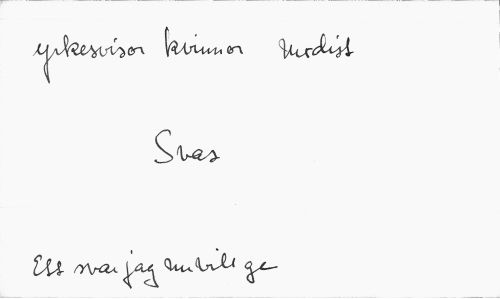 yrkesvisor kvinnor modist
Svar
Ett svar jag nu vill ge